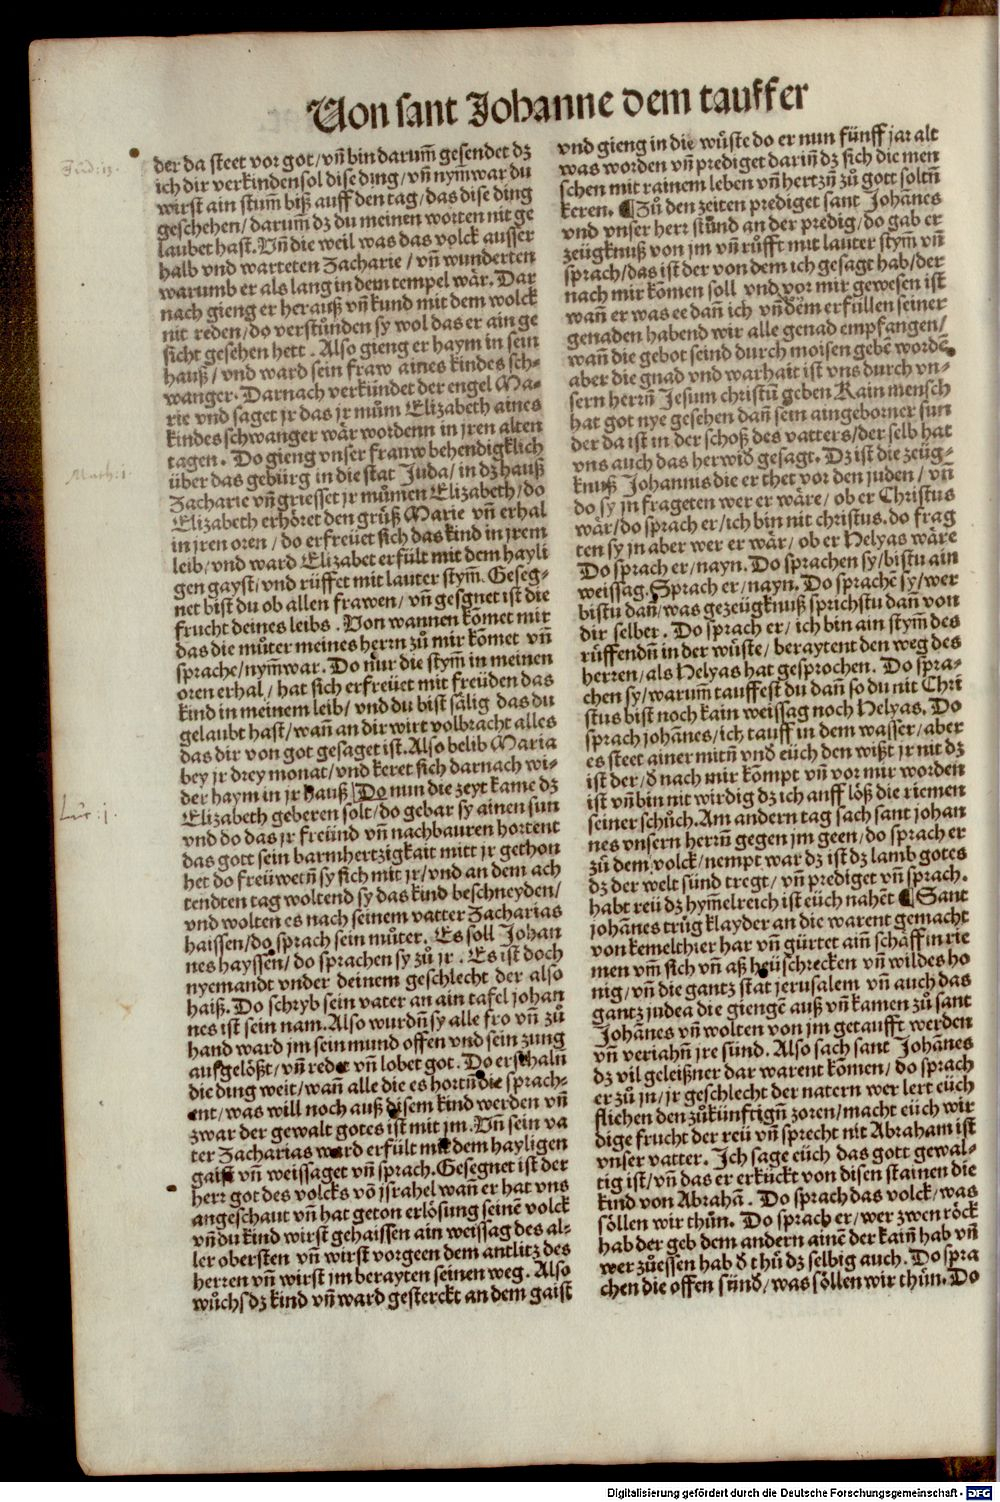 Von sant Johanne dem tauffer
der da steet vor got/ vñ bin darum̃ gesendet dz
ich dir verkinden sol dise ding/ vñ nym̃ war du
wirst ain stum̃ biß auff den tag/ das dise ding
geschehen/ darum̃ dz du meinen worten nit ge
laubet hast. Vñ die weil was das volck ausser
halb vnd warteten Zacharie/ vñ wunderten
warumb er als lang in dem tempel wår. Dar
nach gieng er herauß vñ kund mit dem wolck
nit reden/ do verstůnden sy wol das er ain ge
sicht gesehen hett. Also gieng er haym in sein
hauß/ vnd ward sein fraw aines kindes sch-
wanger. Darnach verkündet der engel Ma-
rie vnd saget jr das jr mům Elizabeth aines
kindes schwanger wår wordenn in jren alten
tagen. Do gieng vnser frauw behendigklich
über das gebürg in die stat Juda/ in dz hauß
Zacharie vñ griesset jr můmen Elizabeth/ do
Elizabeth erhöret den grůß Marie vñ erhal
in jren oren/ do erfreüet sich das kind in jrem
leib/ vnd ward Elizabet erfült mit dem hayli
gen gayst/ vnd rüffet mit lauter stym̃. Geseg-
net bist du ob allen frawen/ vñ gesgnet ist die
frucht deines leibs. Von wannen kõmet mir
das die můter meines herrn zů mir kõmet vñ
sprache/ nym̃ war. Do nur die stym̃ in meinen
oren erhal/ hat sich erfreüet mit freüden das
kind in meinem leib/ vnd du bist sålig das du
gelaubt hast/ wañ an dir wirt volbracht alles
das dir von got gesaget ist. Also belib Maria
bey jr drey monat/ vnd keret sich darnach wi-
der haym in jr hauß/ Do nun die zeyt kame dz
Elizabeth geberen solt/ do gebar sy ainen sun
vnd do das jr freünd vñ nachbauren hortent
das gott sein barmhertzigkait mitt jr gethon
het do freüwetñ sy sich mit jr/ vnd an dem ach
tendten tag woltend sy das kind beschneyden/
vnd wolten es nach seinem vatter Zacharias
haissen/ do sprach sein můter. Es soll Johan
nes hayssen/ do sprachen sy zů jr. Es ist doch
nyemandt vnder deinem geschlecht der also
haiß. Do schryb sein vater an ain tafel johan
nes ist sein nam. Also wurdñ sy alle fro vñ zů
hand ward jm sein mund offen vnd sein zung
aufgelößt/ vñ redet vñ lobet got. Do erschalñ
die ding weit/ wañ alle die es hortñ die sprach-
ent/ was will noch auß disem kind werden vñ
zwar der gewalt gotes ist mit jm. Vñ sein va
ter Zacharias ward erfült mit dem hayligen
gaist vñ weissaget vñ sprach. Gesegnet ist der
herr got des volcks võ jsrahel wañ er hat vns
angeschaut vñ hat geton erlösung seinẽ volck
vñ du kind wirst gehaissen ain weissag des al-
ler obersten vñ wirst vorgeen dem antlitz des
herren vñ wirst jm berayten seinen weg. Also
wůchs dz kind vñ ward gesterckt an dem gaist
vnd gieng in die wůste do er nun fünff jar alt
was worden vñ prediget dariñ dz sich die men
schen mit rainem leben vñ hertzñ zů gott soltñ
keren. ¶ Zů den zeiten prediget sant Johãnes
vnd vnser herr stůnd an der predig/ do gab er
zeügknuß von jm vñ růfft mit lauter stym̃ vñ
sprach/ das ist der von dem ich gesagt hab/ der
nach mir kõmen soll vnd vor mir gewesen ist
wañ er was ee dañ ich vñ dem erfüllen seiner
genaden habend wir alle genad empfangen/
wañ die gebot seind durch moisen gebẽ wordẽ
aber die gnad vnd warhait ist vns durch vn-
sern herrñ Jesum christũ geben Kain mensch
hat got nye gesehen dañ sein aingeborner sun
der da ist in der schoß des vatters/ der selb hat
vns auch das herwiđ gesagt. Dz ist die zeüg-
knuß Johannis die er thet vor den juden/ vñ
do sy jn frageten wer er wåre/ ob er Christus
wår/ do sprach er/ ich bin nit christus. do frag
ten sy jn aber wer er wår/ ob er Helyas wåre
Do sprach er/ nayn. Do sprachen sy/ bistu ain
weissag. Sprach er/ nayn. Do sprachẽ sy/ wer
bistu dañ/ was gezeügknuß sprichstu dañ von
dir selber. Do sprach er/ ich bin ain stym̃ des
rüffendñ in der wůste/ beraytent den weg des
herren/ als Helyas hat gesprochen. Do spra-
chen sy/ warum̃ tauffest du dañ so du nit Chri
stus bist noch kain weissag noch Helyas. Do
sprach johãnes/ ich tauff in dem wasser/ aber
es steet ainer mitñ vnđ eüch den wißt jr nit dz
ist der/ đ nach mir kõmpt vñ vor mir worden
ist vñ bin nit wirdig dz ich auff löß die riemen
seiner schůch. Am andern tag sach sant johan
nes vnsern herrñ gegen jm geen/ do sprach er
zů dem volck/ nempt war dz ist dz lamb gotes
dz der welt sünd tregt/ vñ prediget vñ sprach.
habt reü dz hym̃elreich ist eüch nahẽt ¶ Sant
johãnes trůg klayder an die warent gemacht
von kemelthier har vñ gürtet aiñ schåffin rie
men vm̃ sich vñ aß heüschrecken vñ wildes ho
nig/ vñ die gantz stat jerusalem vñ auch das
gantz judea die giengẽ auß vñ kamen zů sant
Johãnes vñ wolten von jm getaufft werden
vñ veriahñ jre sünd. Also sach sant Johãnes
dz vil geleißner dar warent kõmen/ do sprach
er zů jn/ jr geschlecht der natern wer lert eüch
fliehen den zůkünftigñ zoren/ macht eüch wir
dige frucht der reü vñ sprecht nit Abraham ist
vnser vatter. Ich sage eüch das gott gewal-
tig ist/ vñ das er erkückt von disen stainen die
kind von Abrahã. Do sprach das volck/ was
söllen wir thůn. Do sprach er/ wer zwen röck
hab der geb dem andern ainẽ der kaiñ hab vñ
wer zůessen hab đ thů dz selbig auch. Do spra
chen die offen sünđ/ was söllen wir thůn. Do
Luc: j.
Digitalisierung gefördert durch die Deutsche Forschungsgemeinschaft - DFG